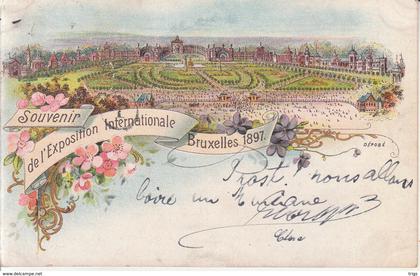 Souvenir
de l'Exposition Internationale
Bruxelles 1897.
DÉPOSÉ
Prost! nous allons
boire un